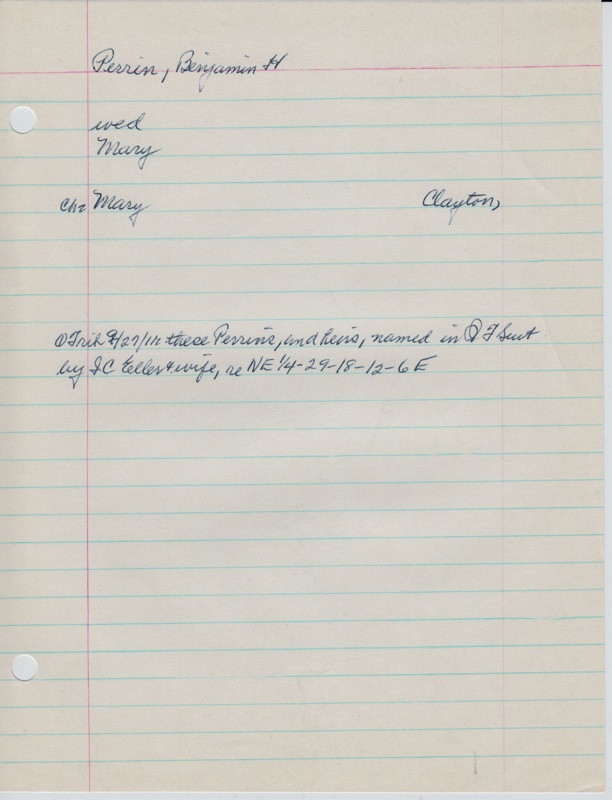 Perrin, Benjamin H
wed
Mary
Ch: Mary Clayton,
O Trib 9/27/18 these Perrins, and heirs, named in Q T Suit
by I C Eller & wife, re NE 1/4-29-18-12-6 E